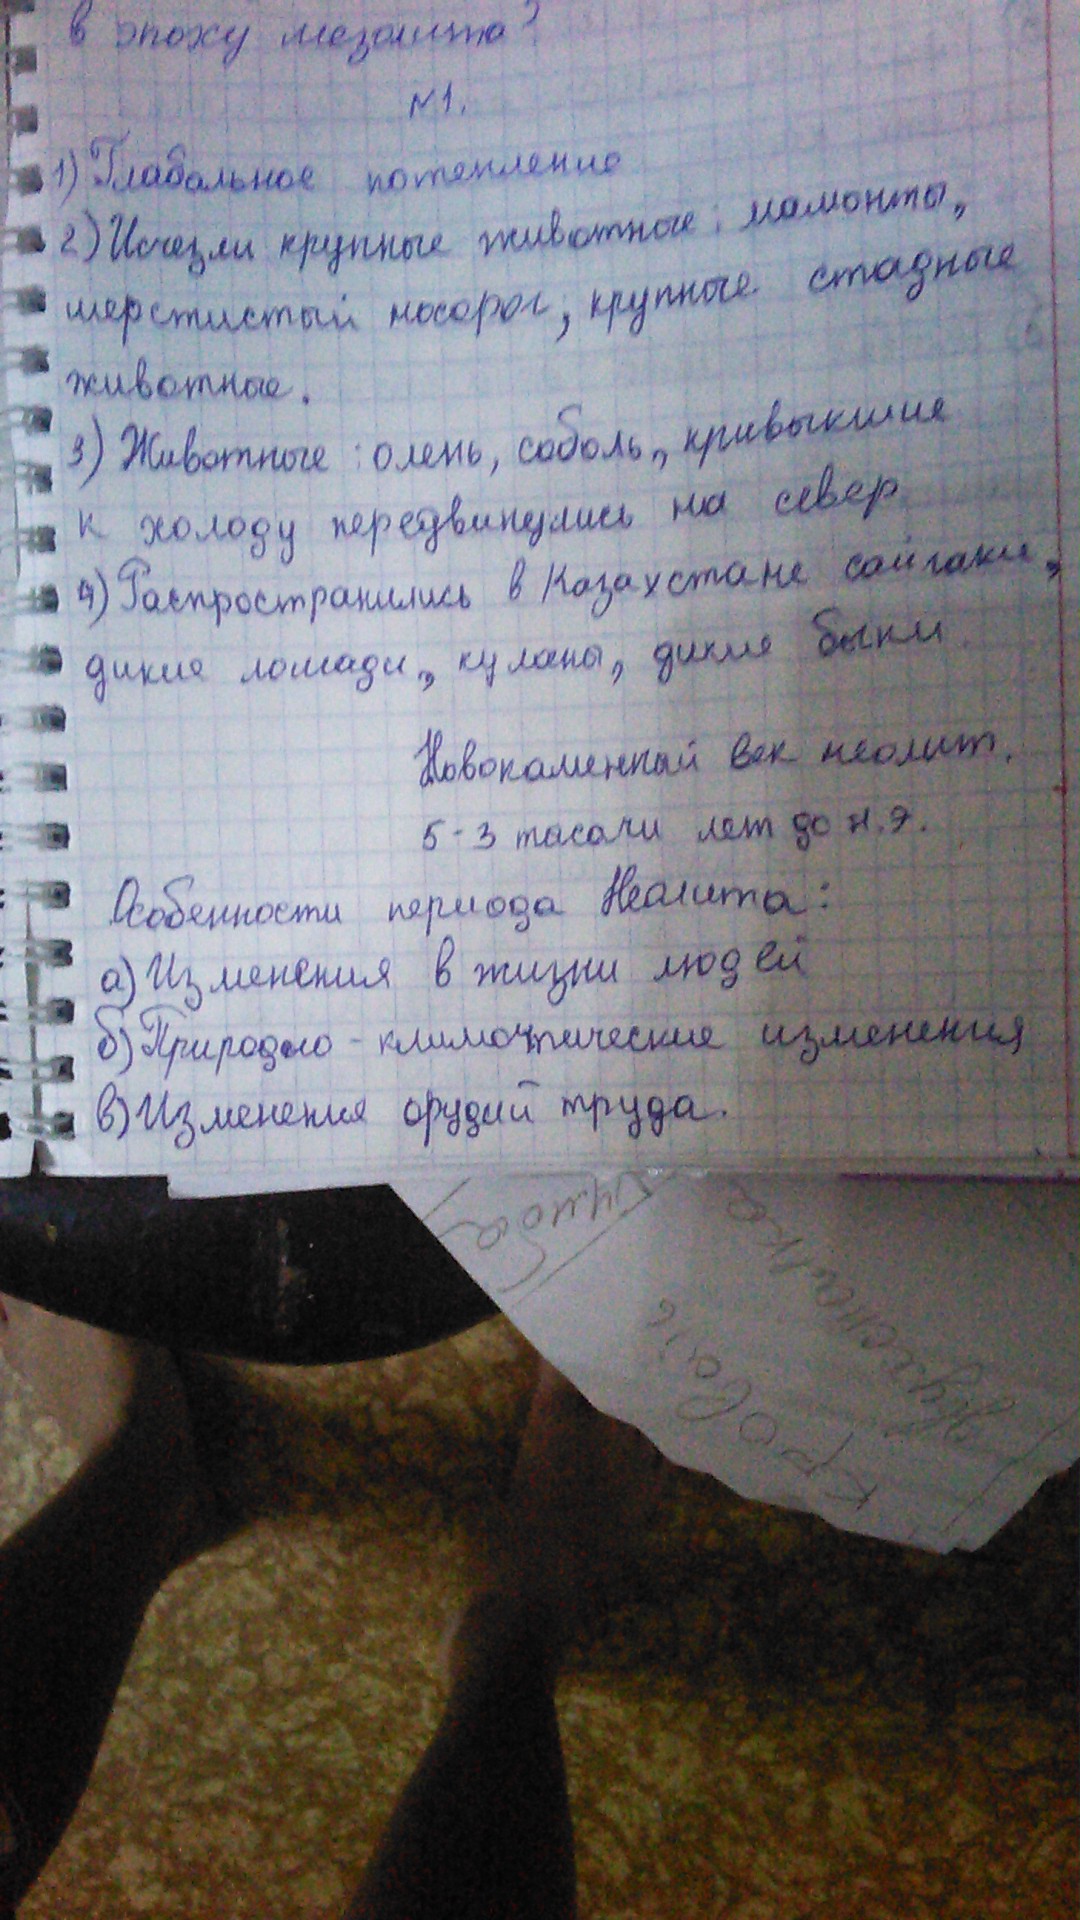 в эпоху мезолита?
№1.
1) Глабальное потепление
2) Исчезли крупные животные: мамонты,
шерстистый носорог, крупные стадные
животные.
3) Животные: олень, соболь, привыкшие
к холоду передвинулись на север
4) Распространились в Казахстане сайгаки,
дикие лошади, куланы, дикие быки.
Новокаменный век неолит.
5-3 тасачи лет до н.э.
Особенности периода Неолита:
а) Изменения в жизни людей
б) Природно-климотические изменения
в) Изменения орудий труда.
тумба
кровать